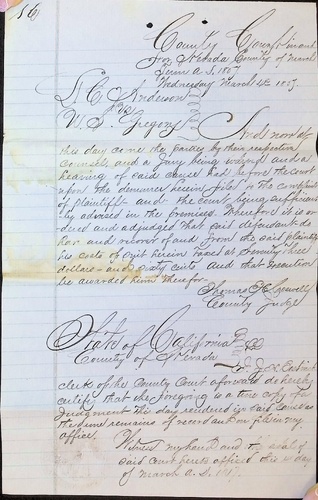 County Court
For Nevada County of March
Term A.D. 1857
Wednesday March 4th 1857
L C Anderson
vs
W. S. Gregory And now at
this day came the parties by their respective
counsels, and a Jury being waived and a
hearing of said cause had before the Court
upon the demurrer herein filed to the complaint
of plaintiff and the court being sufficiently
advised in the premises. Therefore it is or
dered and adjudged that said defendant do
have and recover of and from the said plaintiff
his costs of suit herein taxed at Seventy three
dollars and sixty cents, and that execution
be awarded him therefor
Thomas H Caswell
County Judge
State of California
County of Nevada
clerk of the County Court aforesaid do hereby
certify that the foregoing is a true copy of a
Judgment this day rendered in said Court as
the same remains of record and on file in my
office.
Witness my hand and the seal of
said Court hereto affixed this day
of March A.D. 1857